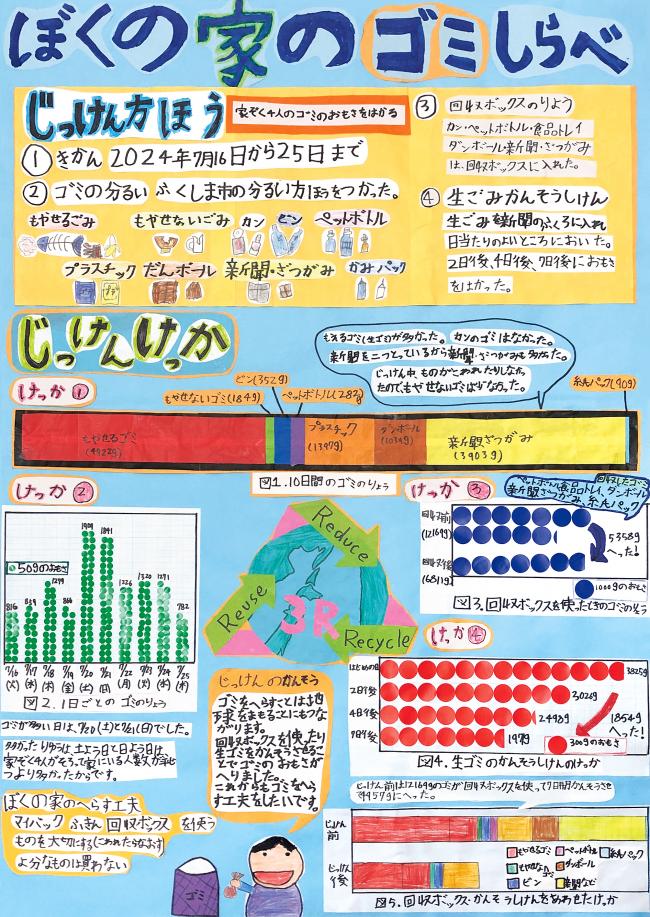 ぼくの家のゴミしらべ
じっけん方ほう
家ぞく4人のゴミのおもさをはかる
① きかん 2024年7月16日から25日まで
② ゴミの分るい ふくしま市の分るい方ほうをつかった。
もやせるごみ もやせないごみ カン ビン ペットボトル
プラスチック だんボール 新聞・ざつがみ かみパック
③ 回収ボックスのりよう
カン・ペットボトル・食品トレイ
ダンボール・新聞・ざつがみ
は、回収ボックスに入れた。
④ 生ごみかんそうじっけん
生ごみを新聞のふくろに入れ
日当たりのよいところにおいた。
2日後、4日後、7日後におもさ
をはかった。
じっけんけっか
もえるゴミ(生ゴミ)が多かった。カンのゴミはなかった。
新聞を二つとっているから新聞・ざつがみも多かった。
じっけん中、ものがこわれたりしなかっ
たので、もやせないゴミは少なかった。
けっか①
ビン(352g)
もやせないゴミ(184g)
ペットボトル(282g)
紙パック(90g)
もやせるゴミ
(4922g)
プラスチック
(1397g)
ダンボール
(1034g)
新聞、ざつがみ
(3903g)
図1.10日間のゴミのりょう
けっか②
50gのおもさ
816 859 1299 866 1909 1841 1226 1320 1271 782
7/16 7/17 7/18 7/19 7/20 7/21 7/22 7/23 7/24 7/25
(火) (水) (木) (金) (土) (日) (月) (火) (水) (木)
図2.1日ごとのゴミのりょう
ゴミが多い日は、7/20(土)と7/21(日)でした。
多かったりゆうは土よう日と日よう日は、
家ぞく4人がそろって家にいる人数が平日
より多かったからです。
ぼくの家のへらす工夫
マイバック ふきん 回収ボックス を使う
ものを大切にする(こわれたらなおす)
よ分なものは買わない
Reduce
Reuse
Recycle
3R
じっけんのかんそう
ゴミをへらすことは地
球をまもることにもつな
がります。
回収ボックスを使ったり
生ゴミをかんそうさせるこ
とでゴミのおもさが
へりました。
これからもゴミをへら
す工夫をしたいです。
ゴミ
けっか③
回収したゴミ
ペットボトル、食品トレイ、ダンボール
新聞ざつがみ、紙パック
回収前
(12169g)
回収後
(6811g)
5358g
へった!
1000gのおもさ
図3.回収ボックスを使ったときのゴミのりょう
けっか④
はじめの日
3825g
2日後
3028g
4日後
2493g
7日後
1971g
1854g
へった!
300gのおもさ
図4.生ゴミのかんそうじっけんのけっか
じっけん前は12169gのゴミが回収ボックスを使って7日間かんそうさせ
て4957gにへった。
じっけん
前
じっけん
後
もやせるゴミ ペットボトル 紙パック
もやせないゴミ ダンボール
ビン 新聞など
図5.回収ボックス・かんそうじっけんをあわせたけっか